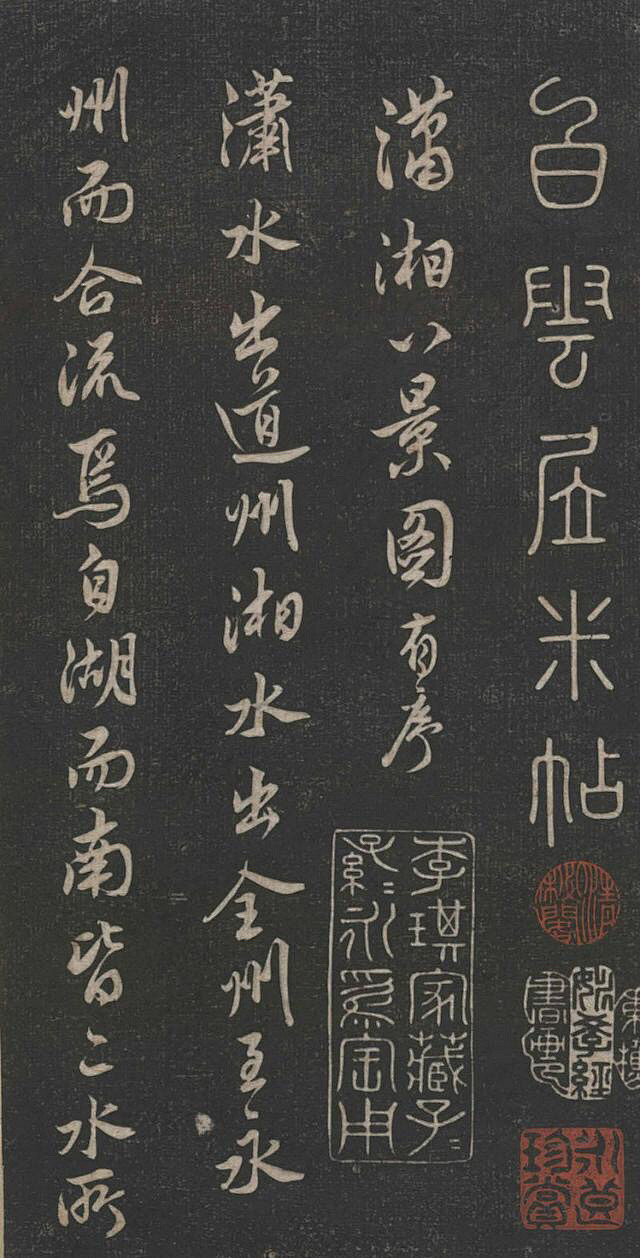 白雲居米帖
瀟湘八景圖 有序
李琪家藏子〻
孫〻永爲宝用
瀟水出道州湘水出全州至永
州而合流焉自湖而南皆二水所
姚學經
書畫